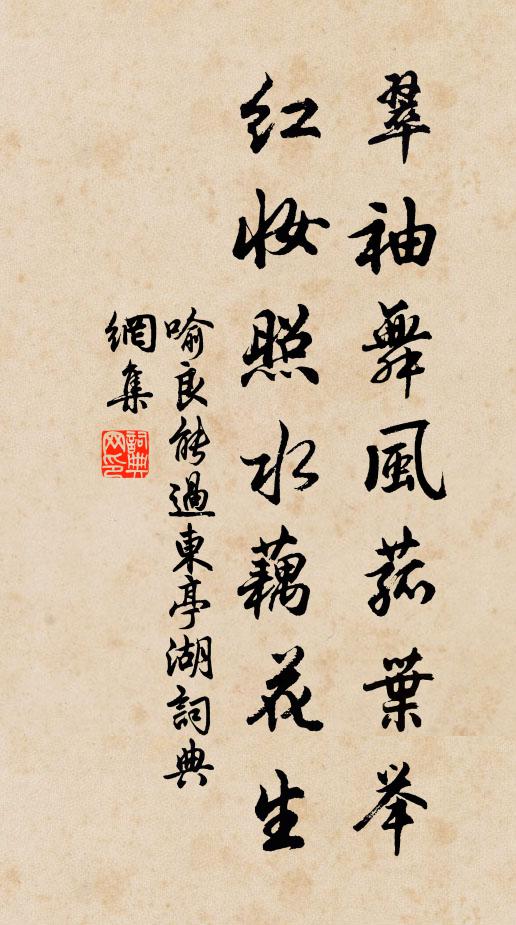 翠袖舞風菰葉举
红妆照水藕花生
喻良能過東亭湖詞典
網集
詞典网印